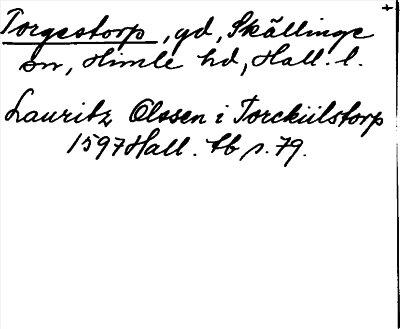 +
Torgestorp, gd, Skällinge
sn, Himle hd, Hall. l.
Lauritz Olssen i Torckiilstorp
1597 Hall. tb s. 79.